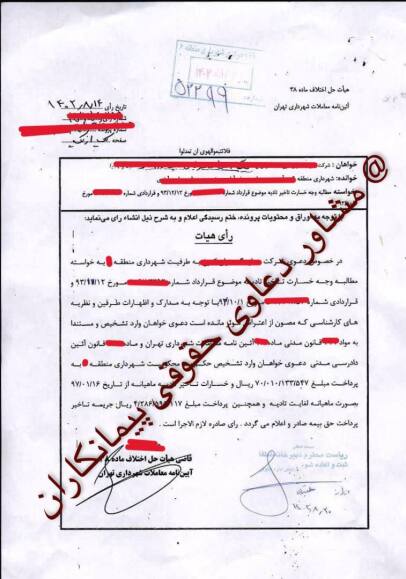 هیأت حل اختلاف ماده ۳۸
آئین‌نامه معاملات شهرداری تهران
۵۲۲۹۹
تاریخ رأی ۱۴۰۲/۸/۱۴
صفحه
فلاتتبعوالهوی ان تعدلوا
خواهان : شرکت
خوانده: شهرداری منطقه
خواسته مطالبه وجه خسارت تاخیر تادیه موضوع قرارداد شماره مورخ ۹۳/۱۲/۱۲ و قراردادی شماره مورخ
توجه به اوراق و محتویات پرونده، ختم رسیدگی اعلام و به شرح ذیل انشاء رای می‌نماید:
رأی هیات
در خصوص دعوی شرکت به طرفیت شهرداری منطقه به خواسته
مطالبه وجه خسارت تاخیر تادیه موضوع قرارداد شماره مورخ ۹۳/۱۲/۱۲ و
قراردادی شماره با توجه به مدارک و اظهارات طرفین و نظریه
های کارشناسی که مصون از اعتراض موثر مانده است دعوی خواهان وارد تشخیص و مستندا
به مواد قانون مدنی ماده آئین نامه معاملات شهرداری تهران و ماده قانون آئین
دادرسی مدنی دعوی خواهان وارد تشخیص حکم به محکومیت شهرداری منطقه به
پرداخت مبلغ ۷۰/۰۱۰/۱۳۳/۵۴۷ ریال و خسارات تاخیر تادیه ماهیانه از تاریخ ۹۷/۰۱/۱۶
بصورت ماهیانه لغایت تادیه و همچنین پرداخت مبلغ ریال جریمه تاخیر
پرداخت حق بیمه صادر و اعلام می گردد . رای صادره لازم الاجرا است .
قاضی هیأت حل اختلاف ماده ۳۸
آیین‌نامه معاملات شهرداری تهران
ریاست محترم دبیرخانه
ثبت و اعاده شود
@مشاور دعاوی حقوقی پیمانکاران